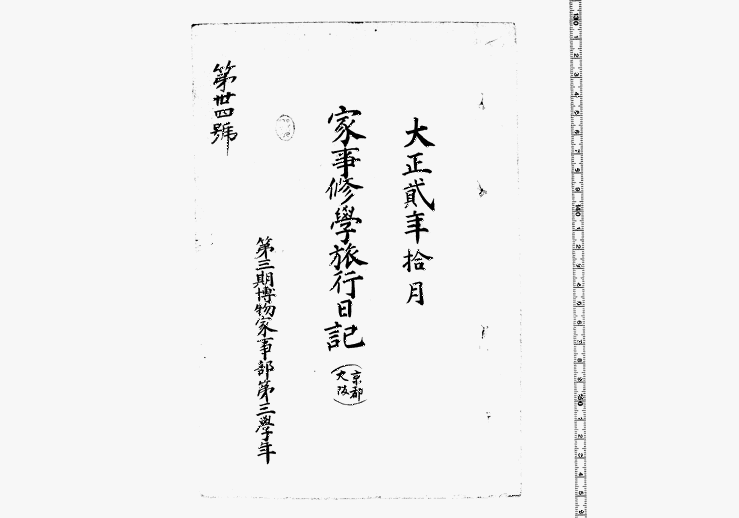 大正貳年拾月
家事修學旅行日記（京都大阪）
第三期博物家事部第三學年
第卅四號